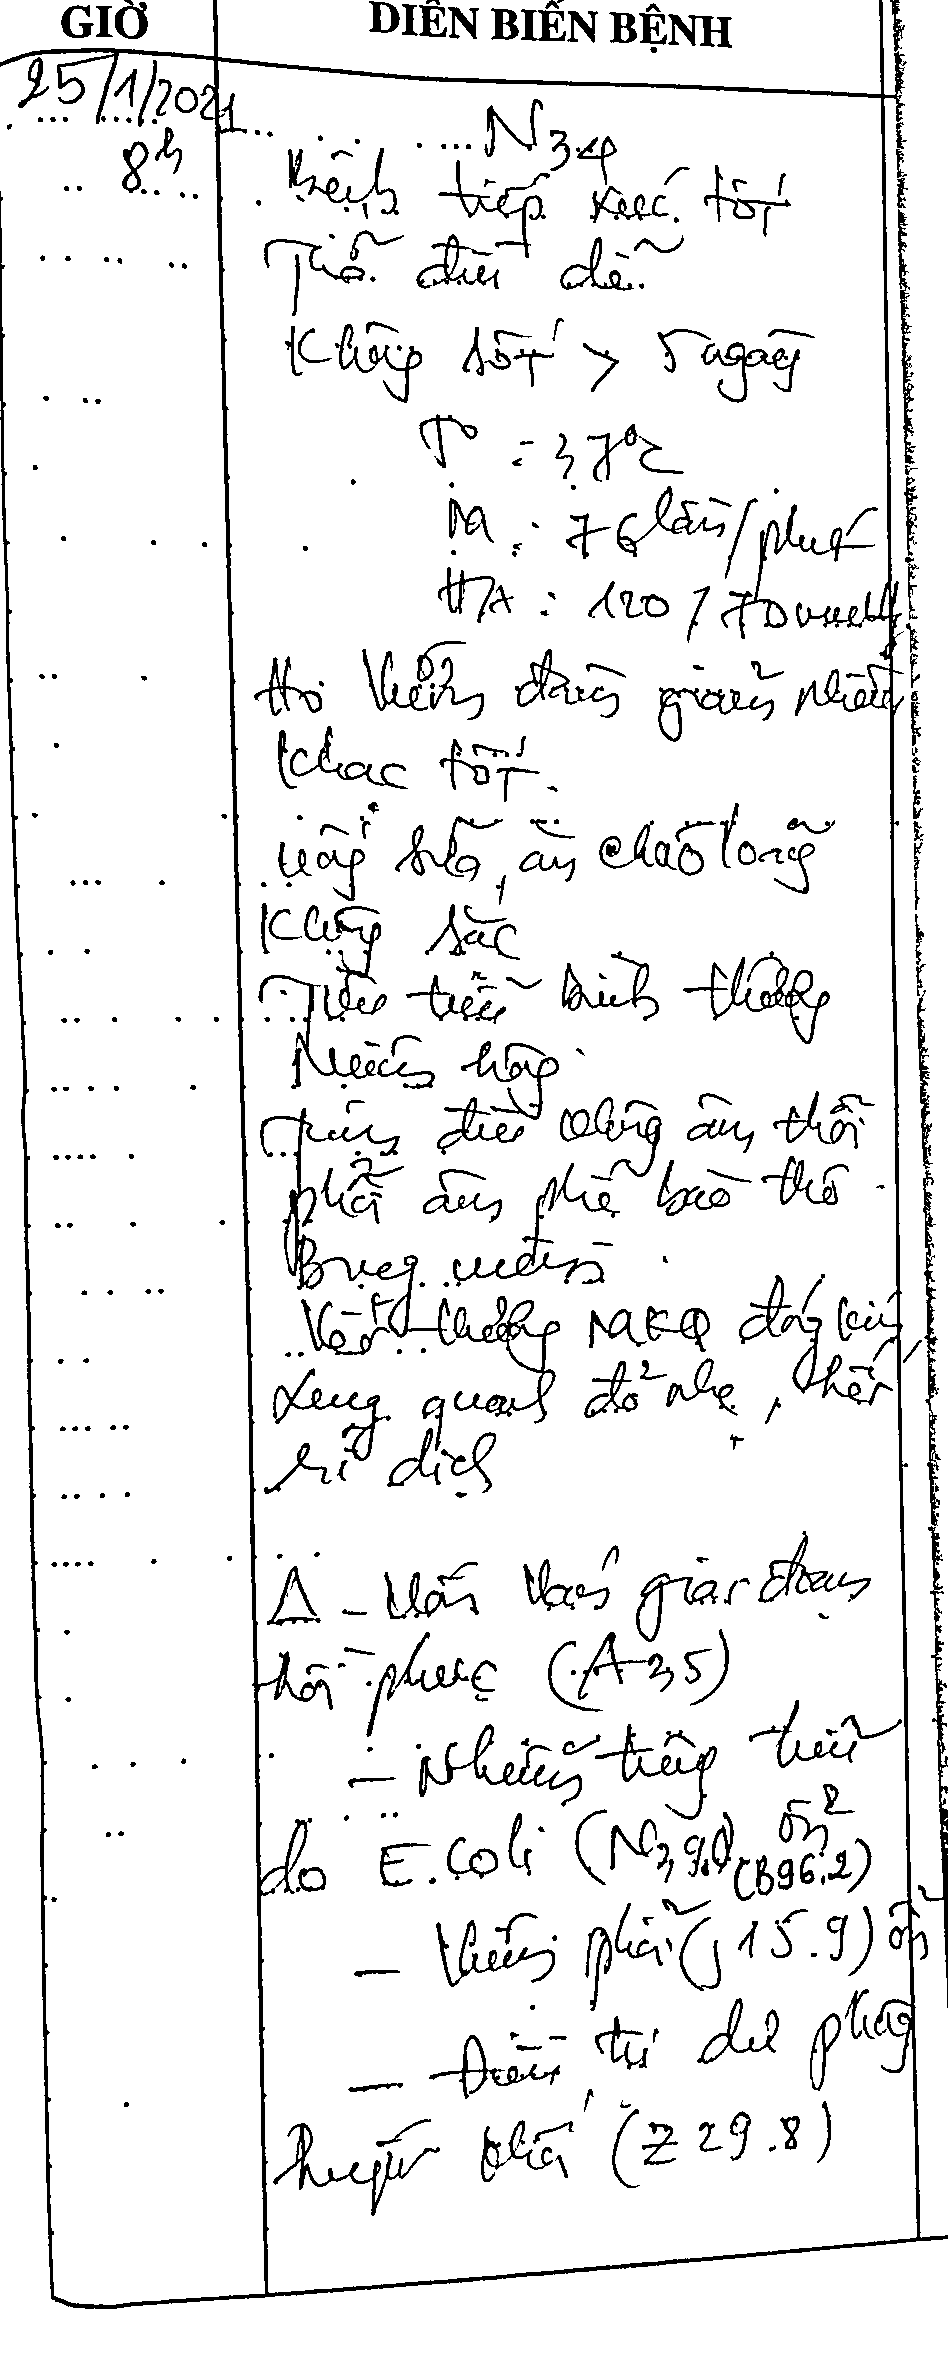 GIỜ DIỄN BIẾN BỆNH
25/1/2021
N34
8h Bệnh tiếp xúc tốt
Thở đều dễ
Không sốt > 5 ngày
T° : 37°C
M : 76 lần/phút
HA : 120/70mmHg
Ho đàm giảm nhiều
khạc tốt
uống sữa, ăn cháo lỏng
Không sặc
Tiêu tiểu bình thường
Niêm hồng
Tim đều không âm thổi
phổi âm phế bào thô
Bụng mềm
Vết thương MKQ đóng kín
xung quanh đỏ nhẹ, hết
rỉ dịch
Δ - Uốn ván giai đoạn
hồi phục (A35)
- Nhiễm trùng tiểu
do E.Coli (N39.0) (B96.2) ổn
- Viêm phổi (J15.9) ổn
- Điều trị dự phòng
huyết khối (Z29.8)